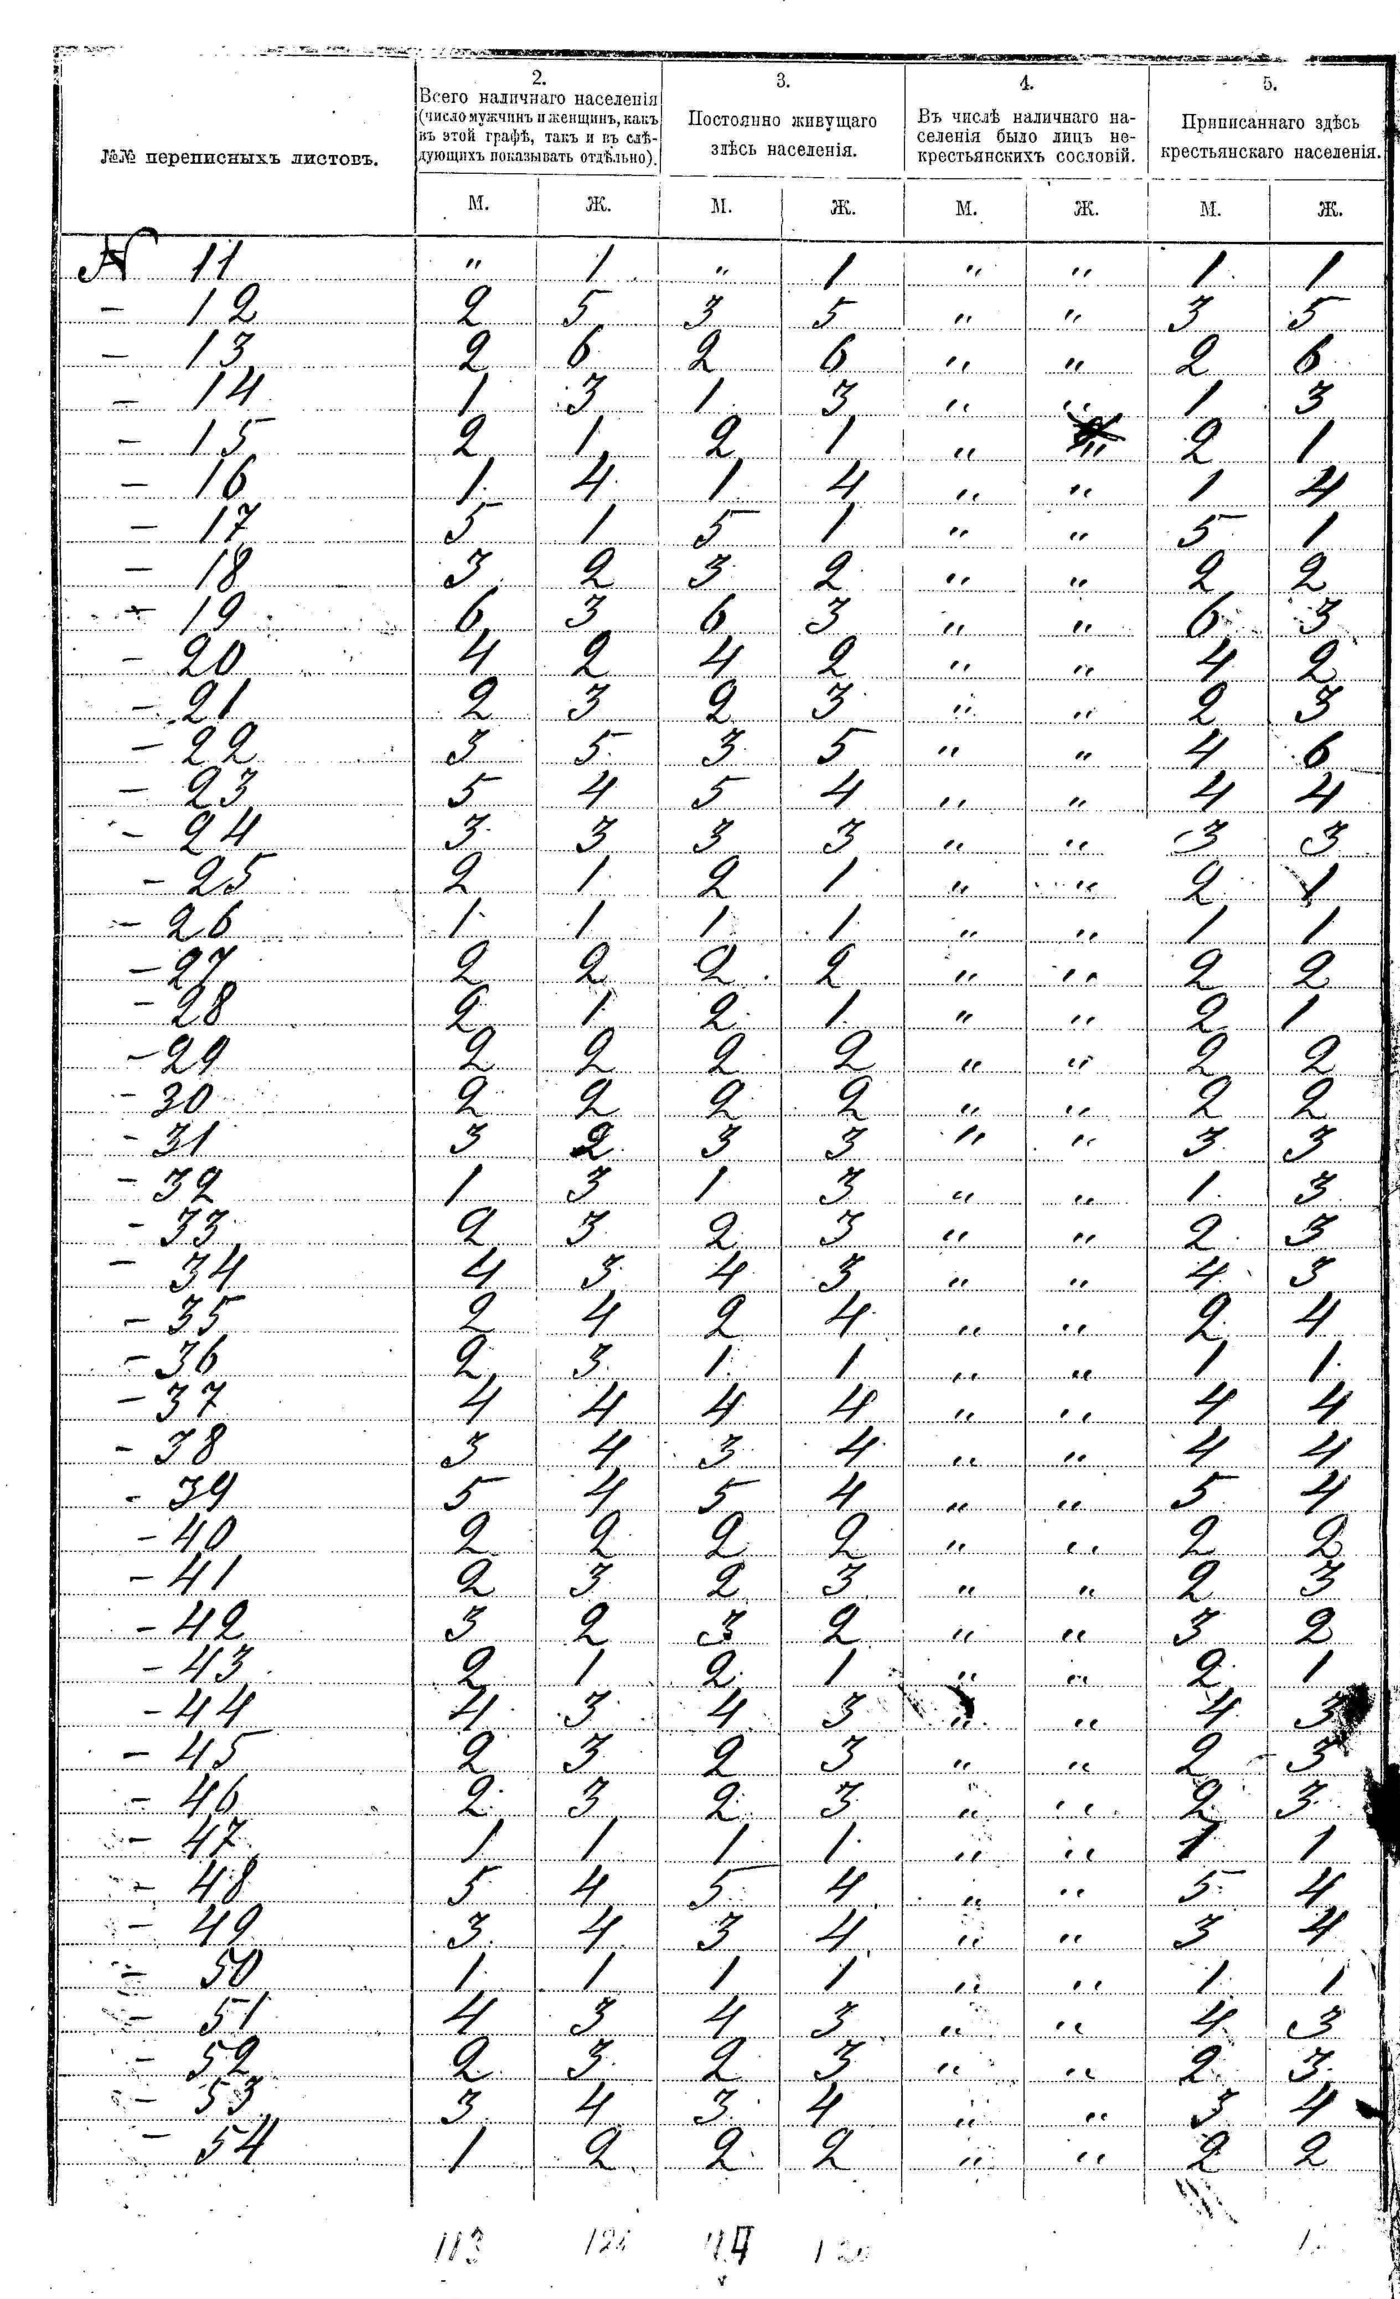 №№ переписныхъ листовъ.
2.
Всего наличнаго населенія
(число мужчинъ и женщинъ, какъ
въ этой графѣ, такъ и въ слѣ-
дующихъ показывать отдѣльно).
3.
Постоянно живущаго
здѣсь населенія.
4.
Въ числѣ наличнаго на-
селенія было лицъ не-
крестьянскихъ сословій.
5.
Приписаннаго здѣсь
крестьянскаго населенія.
М. Ж. М. Ж. М. Ж. М. Ж.
N 11 " 1 " 1 " " 1 1
- 12 2 5 3 5 " " 3 5
- 13 2 6 2 6 " " 2 6
- 14 1 3 1 3 " " 1 3
- 15 2 1 2 1 " " 2 1
- 16 1 4 1 4 " " 1 4
- 17 5 1 5 1 " " 5 1
- 18 3 2 3 2 " " 2 2
- 19 6 3 6 3 " " 6 3
- 20 4 2 4 2 " " 4 2
- 21 2 3 2 3 " " 2 3
- 22 3 5 3 5 " " 4 6
- 23 5 4 5 4 " " 4 4
- 24 3 3 3 3 " " 3 3
- 25 2 1 2 1 " " 2 1
- 26 1 1 1 1 " " 1 1
- 27 2 2 2 2 " " 2 2
- 28 2 1 2 1 " " 2 1
- 29 2 2 2 2 " " 2 2
- 30 2 2 2 2 " " 2 2
- 31 3 2 3 3 " " 3 3
- 32 1 3 1 3 " " 1 3
- 33 2 3 2 3 " " 2 3
- 34 4 3 4 3 " " 4 3
- 35 2 4 2 4 " " 2 4
- 36 2 3 1 1 " " 1 1
- 37 4 4 4 4 " " 4 4
- 38 3 4 3 4 " " 4 4
- 39 5 4 5 4 " " 5 4
- 40 2 2 2 2 " " 2 2
- 41 2 3 2 3 " " 2 3
- 42 3 2 3 2 " " 3 2
- 43 2 1 2 1 " " 2 1
- 44 4 3 4 3 " " 4 3
- 45 2 3 2 3 " " 2 3
- 46 2 3 2 3 " " 2 3
- 47 1 1 1 1 " " 1 1
- 48 5 4 5 4 " " 5 4
- 49 3 4 3 4 " " 3 4
- 50 1 1 1 1 " " 1 1
- 51 4 3 4 3 " " 4 3
- 52 2 3 2 3 " " 2 3
- 53 3 4 3 4 " " 3 4
- 54 1 2 2 2 " " 2 2
113